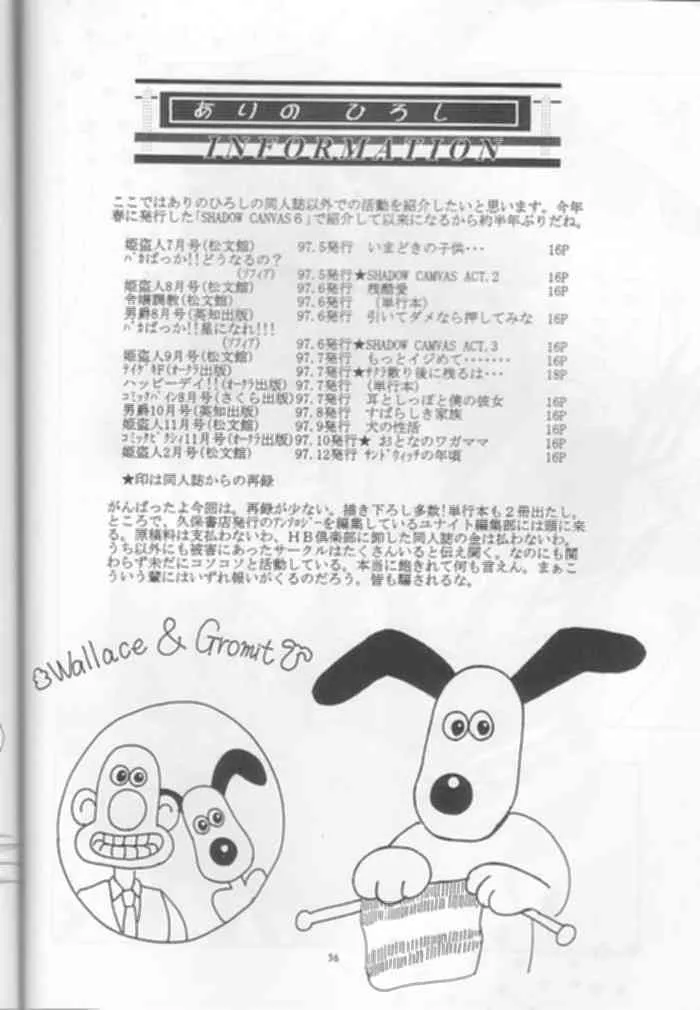 ありの ひろし
INFORMATION
ここではありのひろしの同人誌以外での活動を紹介したいと思います。今年
春に発行した「SHADOW CANVAS6」で紹介して以来になるから約半年ぶりだね。
姫盗人7月号(松文館) 97.5発行 いまどきの子供・・・ 16P
バカばっか!!どうなるの?
(ソフィア) 97.5発行★SHADOW CAMVAS ACT.2 16P
姫盗人8月号(松文館) 97.6発行 残酷愛 16P
令嬢調教(松文館) 97.6発行 (単行本)
男爵8月号(英知出版) 97.6発行 引いてダメなら押してみな 16P
バカばっか!!星になれ!!!
(ソフィア) 97.6発行★SHADOW CAMVAS ACT.3 16P
姫盗人9月号(松文館) 97.7発行 もっとイジめて・・・・・・・ 16P
(オークラ出版) 97.7発行★サクラ散り後に残るは・・・ 18P
ハッピーデイ!!(オークラ出版)97.7発行 (単行本)
コミックパイン8月号(さくら出版)97.7発行 耳としっぽと僕の彼女 16P
男爵10月号(英知出版) 97.8発行 すばらしき家族 16P
姫盗人11月号(松文館) 97.9発行 犬の性活 16P
コミックピクシィ11月号(オークラ出版)97.10発行★ おとなのワガママ 16P
姫盗人2月号(松文館) 97.12発行 サンドウィッチの年頃 16P
★印は同人誌からの再録
がんばったよ今回は。再録が少ない。描き下ろし多数!単行本も2冊出たし。
ところで、久保書店発行のアンソロジーを編集しているユナイト編集部には頭に来
る。原稿料は支払わないわ、HB倶楽部に卸した同人誌の金は払わないわ。
うち以外にも被害にあったサークルはたくさんいると伝え聞く。なのにも関
わらず未だにコソコソと活動している。本当に飽きれて何も言えん。まぁこ
ういう輩にはいずれ報いがくるのだろう。皆も騙されるな。
Wallace & Gromit
36